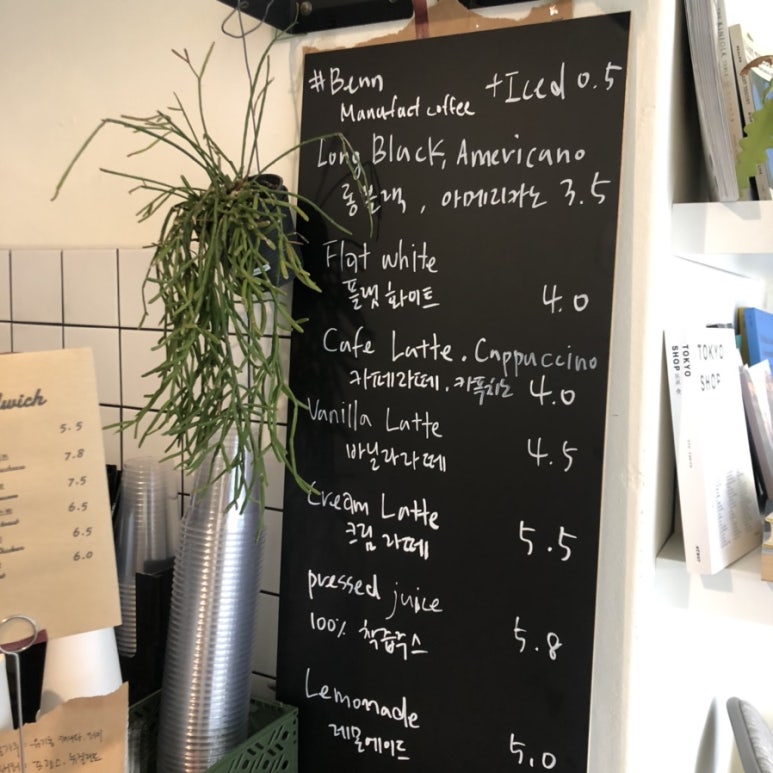 #Benn
+Iced 0.5
Manufact coffee
Long Black, Americano
롱블랙, 아메리카노 3.5
Flat white
플랫화이트 4.0
Cafe Latte. Cappuccino
카페라떼. 카푹치노 4.0
Vanilla Latte
바닐라라떼 4.5
Cream Latte
크림라떼 5.5
pressed juice
100% 착즙쥬스 5.8
Lemonade
레몬에이드 5.0
5.5
7.8
7.5
6.5
6.5
6.0
TOKYO
SHOP
TOKYO
SHOP